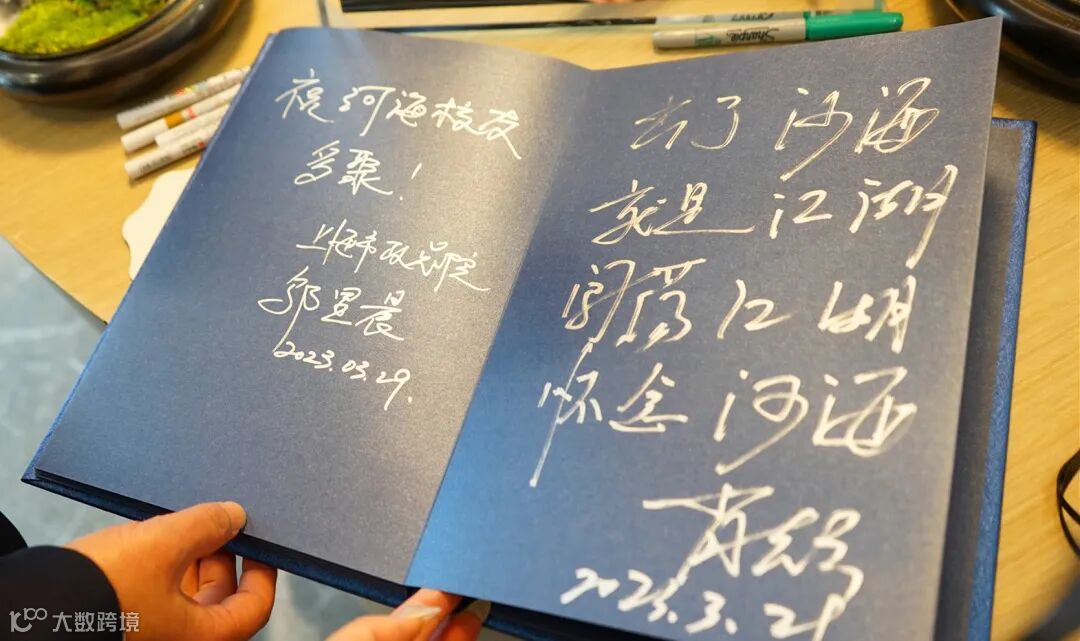 祝河海校友
多聚!
上海市
2023.03.29.
出了河海
就是江湖
闯荡江湖
怀念河海
2023.3.29
Sharpie
大数跨境